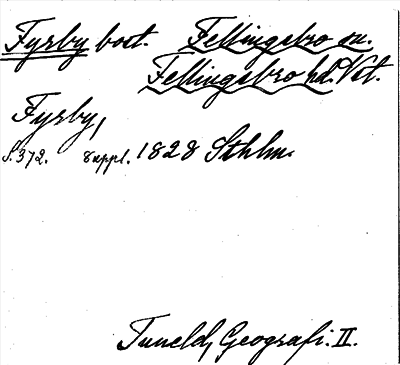 Fyrby bost. Fellingsbro sn.
Fellingsbro hd. Vst.
Fyrby,
S. 372. Suppl. 1828 Sthlm.
Tuneld, Geografi. II.